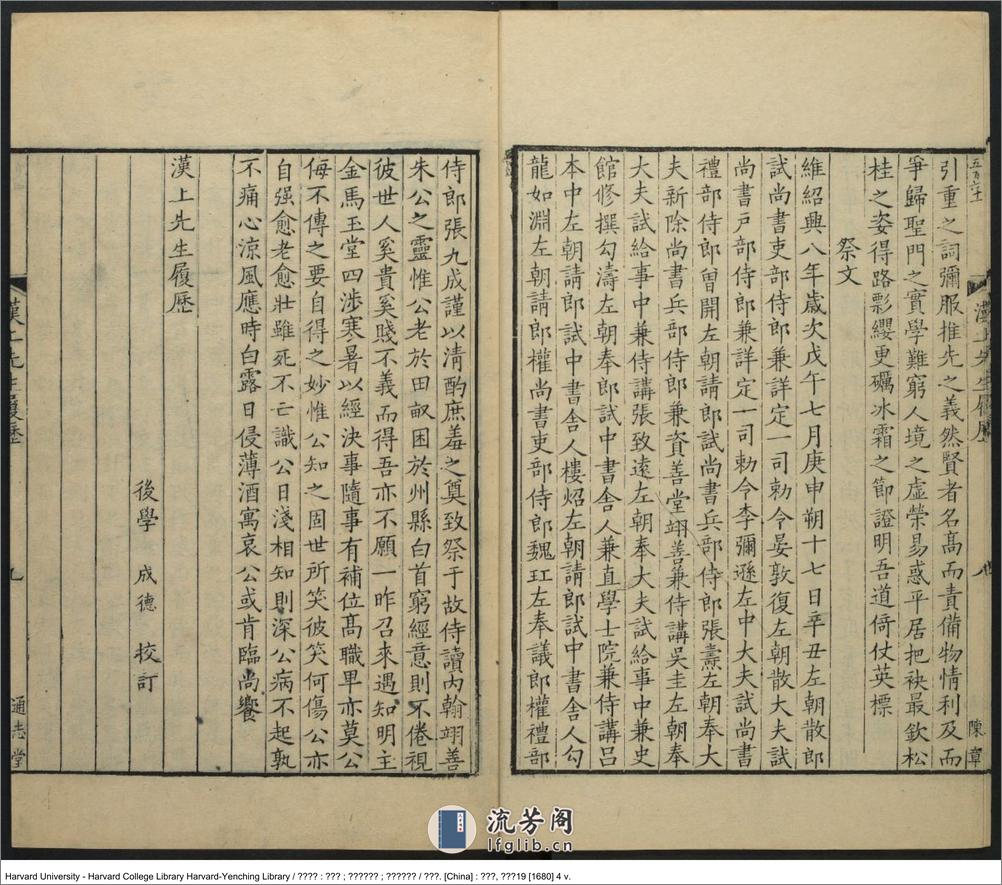 五百六十
漢上先生履歷
陳章
引重之詞彌服推先之義然賢者名髙而責備物情利及而
爭歸聖門之實學難窮人境之虛榮易惑平居把袂最欽松
桂之姿得路影纓更礪冰霜之節證明吾道倚仗英標
祭文
維紹興八年歲次戊午七月庚申朔十七日辛丑左朝散郎
試尚書吏部侍郎兼詳定一司勑令晏敦復左朝散大夫試
尚書戸部侍郎兼詳定一司勑令李彌遜左中大夫試尚書
禮部侍郎曾開左朝請郎試尚書兵部侍郎張燾左朝奉大
夫新除尚書兵部侍郎兼資善堂翊善兼侍講吳圭左朝奉
大夫試給事中兼侍講張致遠左朝奉大夫試給事中兼史
館修撰勾濤左朝奉郎試中書舍人兼直學士院兼侍講吕
本中左朝請郎試中書舍人樓炤左朝請郎試中書舍人勾
龍如淵左朝請郎權尚書吏部侍郎魏矼左奉議郎權禮部
侍郎張九成謹以清酌庶羞之奠致祭于故侍讀内翰翊善
朱公之靈惟公老於田畝困於州縣白首窮經意則不倦視
彼世人奚貴奚賤不義而得吾亦不願一昨召來遇知明主
金馬玉堂四涉寒暑以經決事隨事有補位髙職卑亦莫公
侮不傳之要自得之妙惟公知之固世所笑彼笑何傷公亦
自强愈老愈壯雖死不亡識公日淺相知則深公病不起孰
不痛心涼風應時白露日侵薄酒寓哀公或肯臨尚饗
漢上先生履歷
後學 成德 校訂
漢上先生履歷
九
通志堂
流芳阁
lfglib.cn
Harvard University - Harvard College Library Harvard-Yenching Library / ???? : ??? ; ?????? ; ?????? / ???. [China] : ???, ???19 [1680] 4 v.